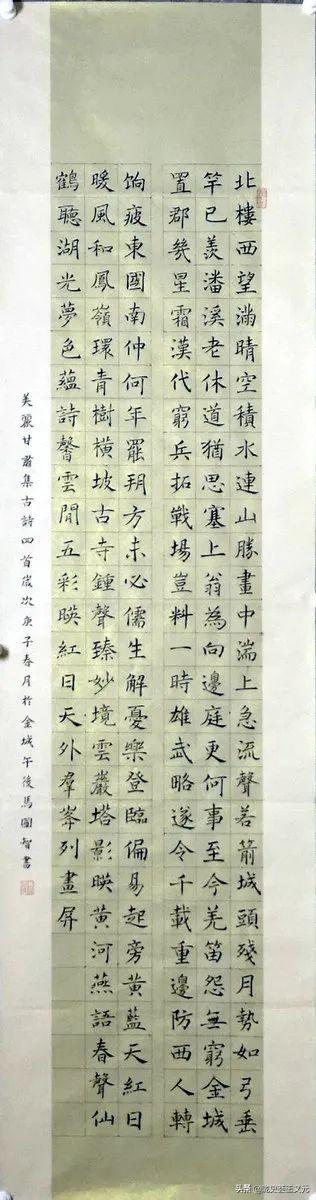 北樓西望滿晴空積水連山勝畫中湍上急流聲若箭城頭殘月勢如弓垂
竿已羨潘溪老休道猶思塞上翁為向邊庭更何事至今羌笛怨無窮金城
置郡幾星霜漢代窮兵拓戰場豈料一時雄武略遂令千載重邊防西人轉
餉疲東國南仲何年罷朔方未必儒生解憂樂登臨偏易起旁黃藍天紅日
暖風和鳳嶺環青樹橫坡古寺鍾聲臻妙境雲巖塔影暎黃河燕語春聲仙
鶴聽湖光夢色蘊詩馨雲閒五彩暎紅日天外羣峯列畫屏
美麗甘肅集古詩四首歲次庚子春月於金城午後馬國智書
头条 @陇史荟王文元